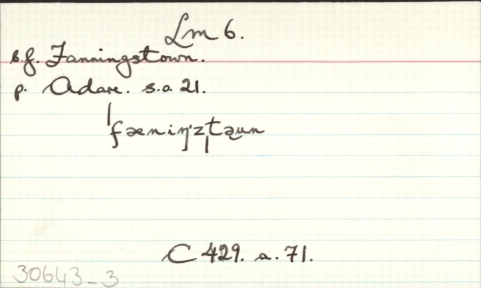 Lm 6.
s.f. Fanningstown.
p. Adare. s.a 21.
ˈfæniŋ'zˌtəun
C 429. a. 71.
30643_3